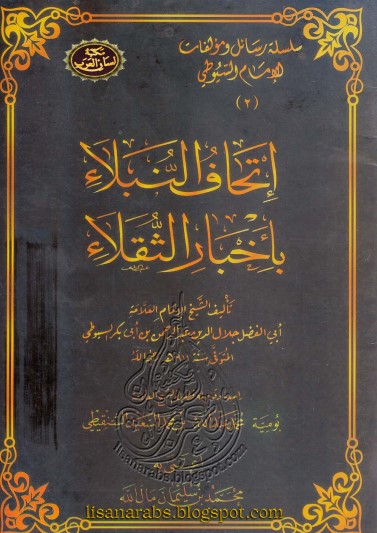 سلسلة رسائل ومؤلفات
الإمام السيوطي
(٢)
مكتبة
لسان العرب
إتحاف النبلاء
بأخبار الثقلاء
تأليف الشيخ الإمام العلامة
أبي الفضل جلال الدين عبد الرحمن بن أبي بكر السيوطي
المتوفى سنة ٩١١ هـ رحمه الله
محمد بن سليمان مال الله
lisanarabs.blogspot.com